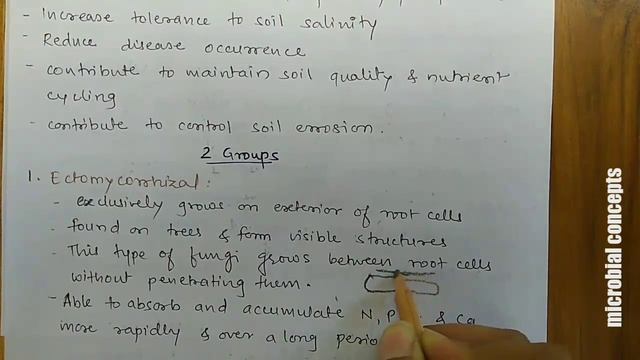 - Increase tolerance to soil salinity
- Reduce disease occurrence
- contribute to maintain soil quality & nutrient
cycling
- contribute to control soil errosion.
2 Groups
1. Ectomycorrhizal:
- exclusively grows on exterior of root cells
- found on trees & form visible structures
- This type of fungi grows between root cells
without penetrating them.
- Able to absorb and accumulate N, P & Ca
more rapidly & over a long
microbial concepts